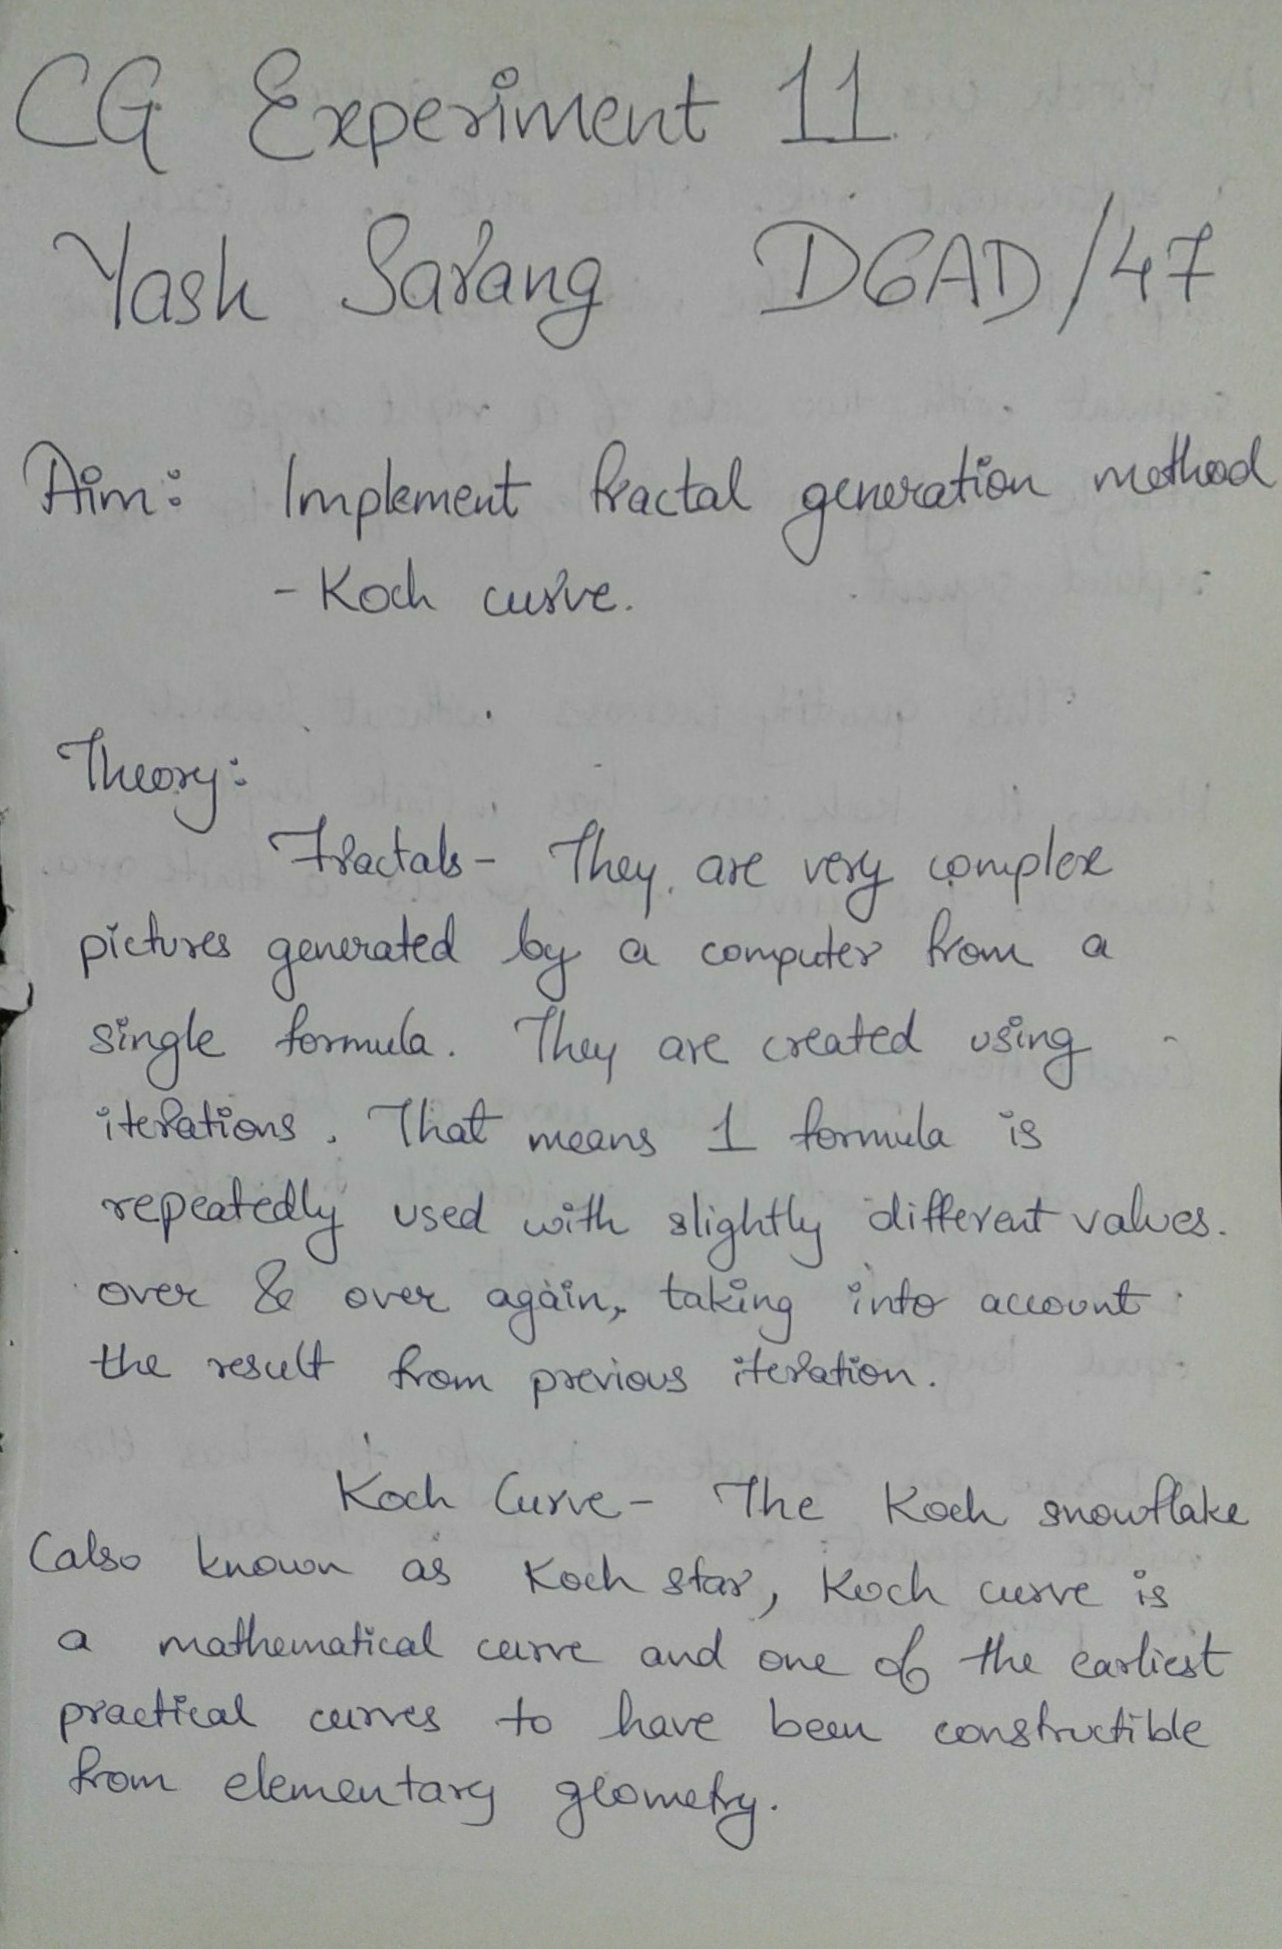 CG Experiment 11
Yash Sarang D6AD/47
Aim: Implement fractal generation method
- Koch curve.
Theory:
Fractals - They are very complex
pictures generated by a computer from a
single formula. They are created using
iterations. That means 1 formula is
repeatedly used with slightly different values.
over & over again, taking into account
the result from previous iteration.
Koch Curve - The Koch snowflake
(also known as Koch star, Koch curve is
a mathematical curve and one of the earliest
practical curves to have been constructible
from elementary geometry.